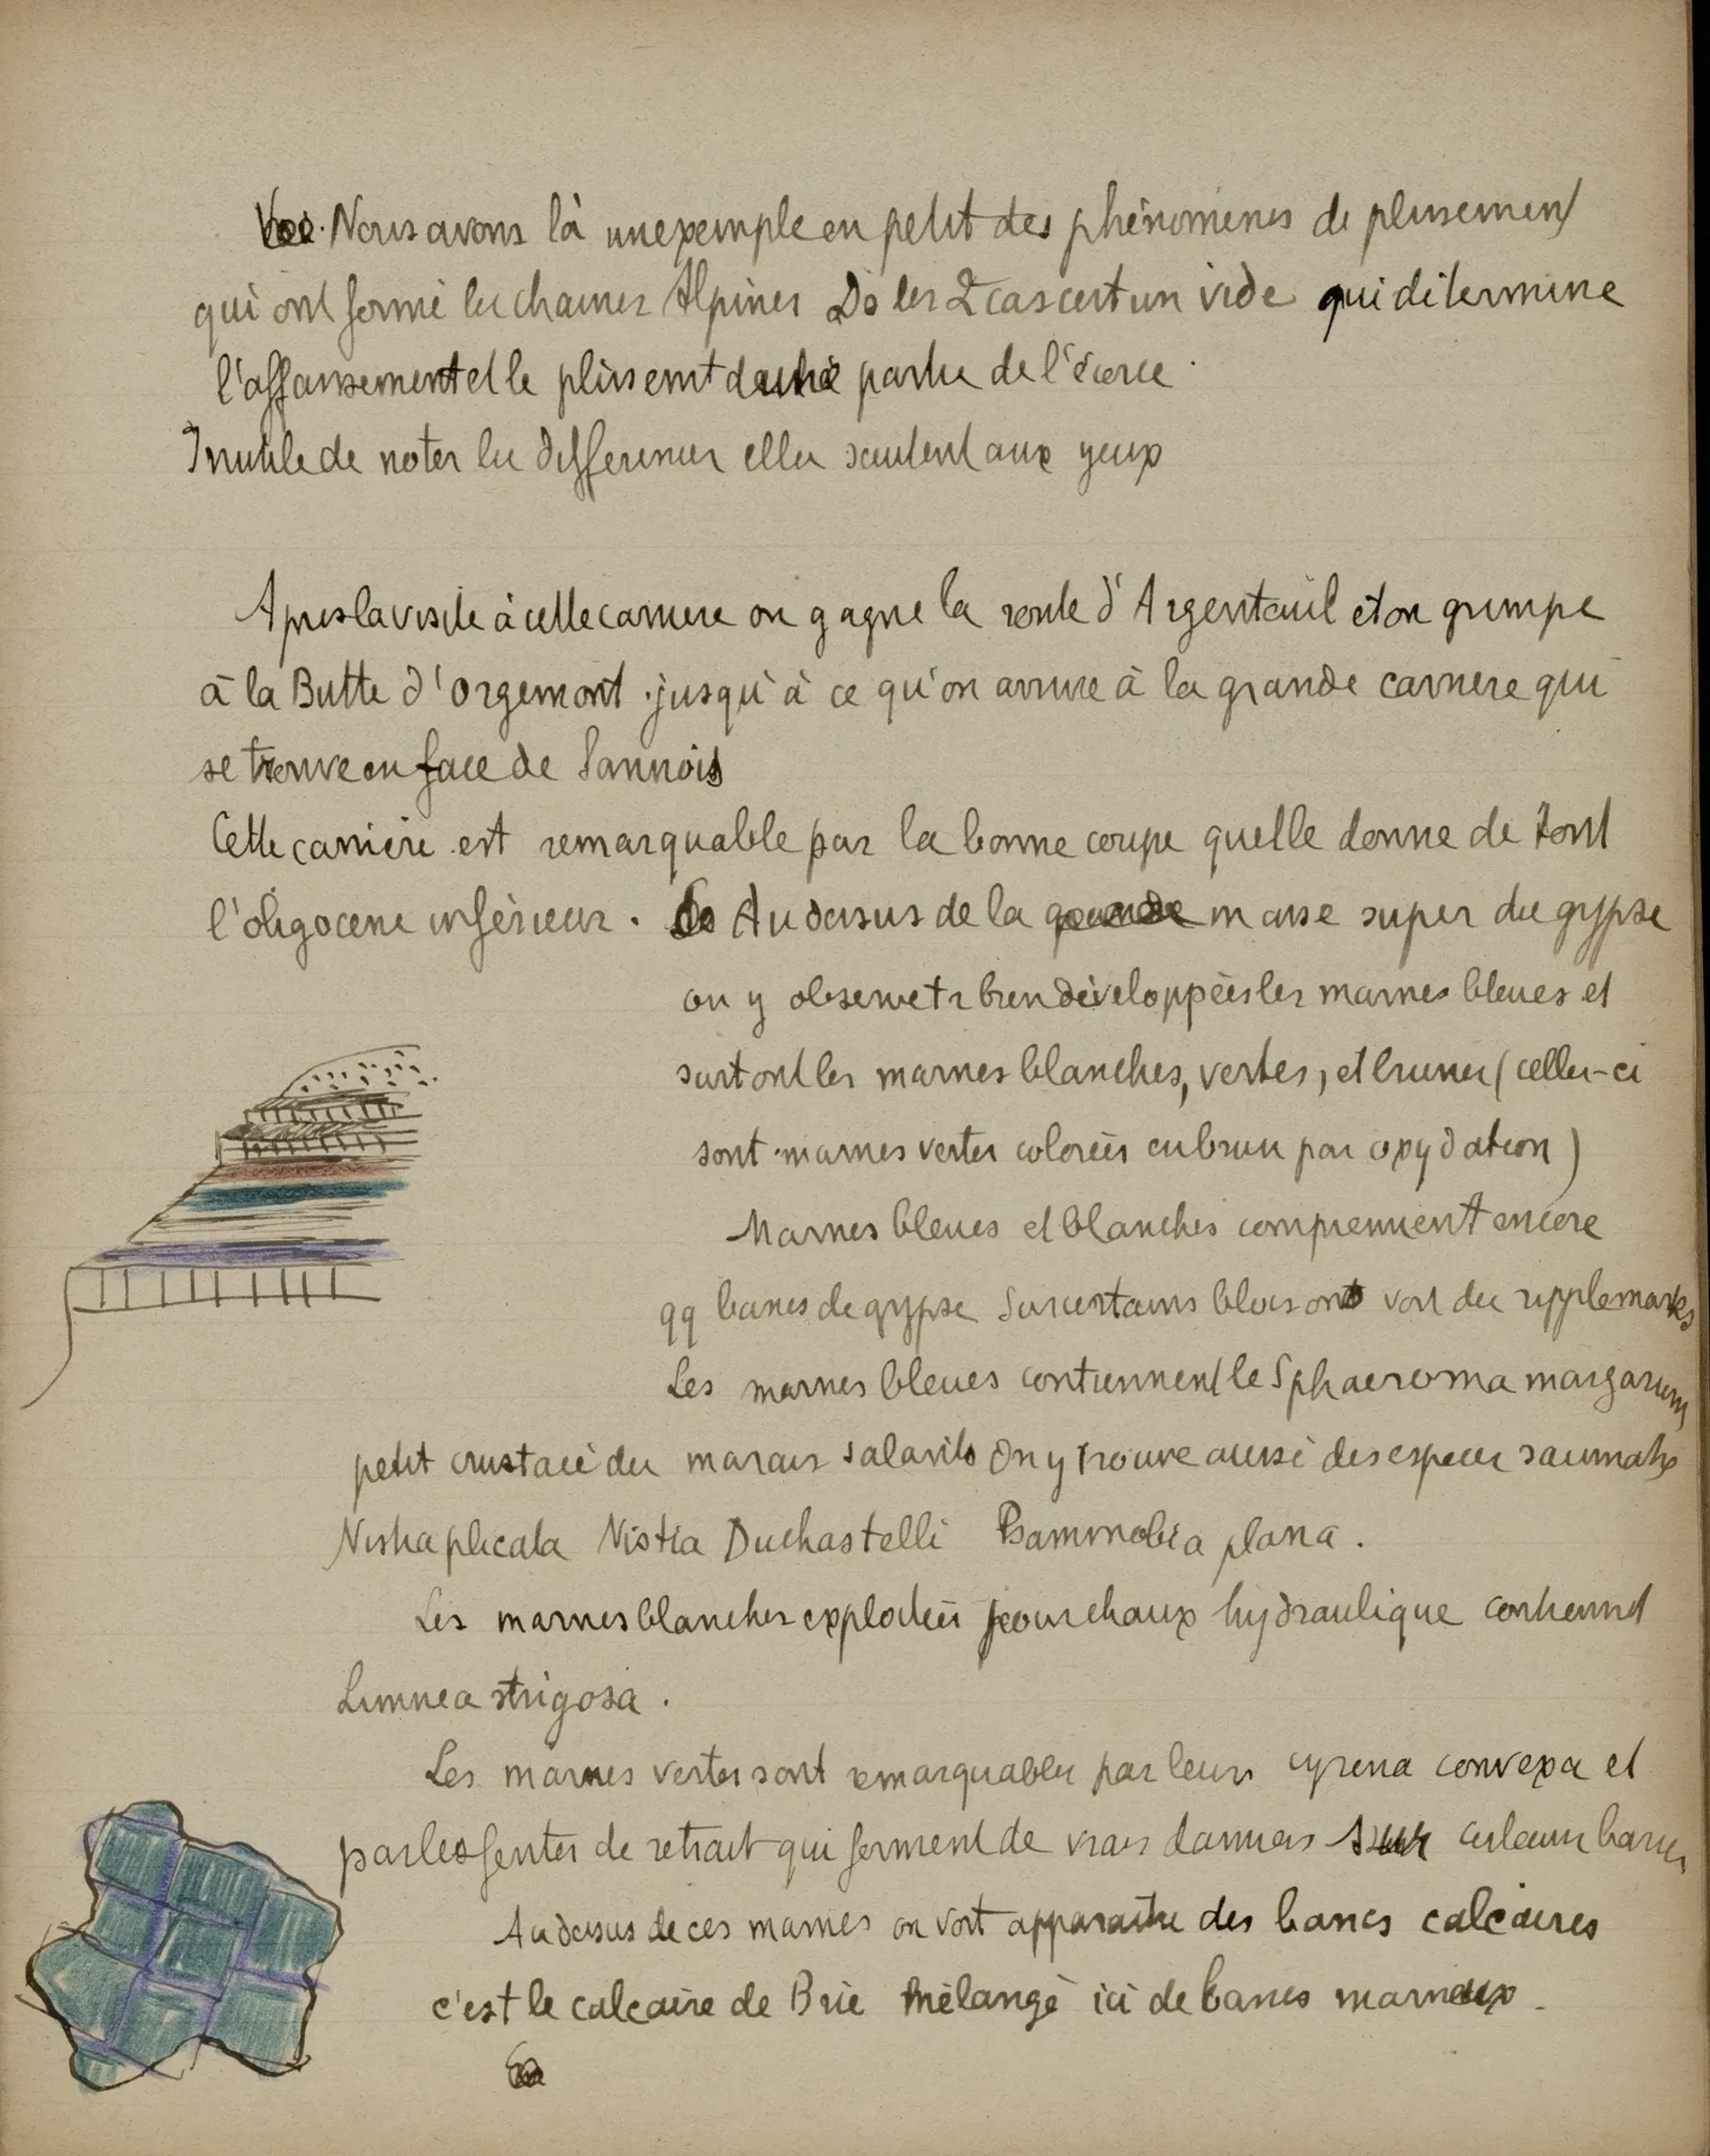 Nous avons là un exemple en petit des phénomènes de plissement
qui ont formé les chaines Alpines Ds les 2 cas c'est un vide qui détermine
l'affaissement et le plissemt d'une partie de l'écorce.
Inutile de noter les différences elles sautent aux yeux
Apres la visite à cette carriere on gagne la route d'Argenteuil et on grimpe
à la Butte d'Orgemont jusqu'à ce qu'on arrive à la grande carriere qui
se trouve en face de Sannois
Cette carrière est remarquable par la bonne coupe quelle donne de tout
l'oligocene inférieur. Au dessus de la masse super du gypse
on y observe tr bien développées les marnes bleues et
surtout les marnes blanches, vertes, et brunes (celles-ci
sont marnes vertes colorées en brun par oxydation)
Marnes bleues et blanches comprennent encore
qq bancs de gypse Sur certains blocs on voit des ripplemarks
Les marnes bleues contiennent le Sphaeroma margarum,
petit crustacé des marais salants On y trouve aussi des especes saumatres
Nistia plicata Nistia Duchastelli Psammobia plana.
Les marnes blanches exploitées pour chaux hydraulique contiennt
Limnea strigosa.
Les marnes vertes sont remarquables par leurs cyrena convexa et
par les fentes de retrait qui forment de vrais damiers sur certains bancs
Au dessus de ces marnes on voit apparaitre des bancs calcaires
c'est le calcaire de Brie mélangé ici de bancs marneux.